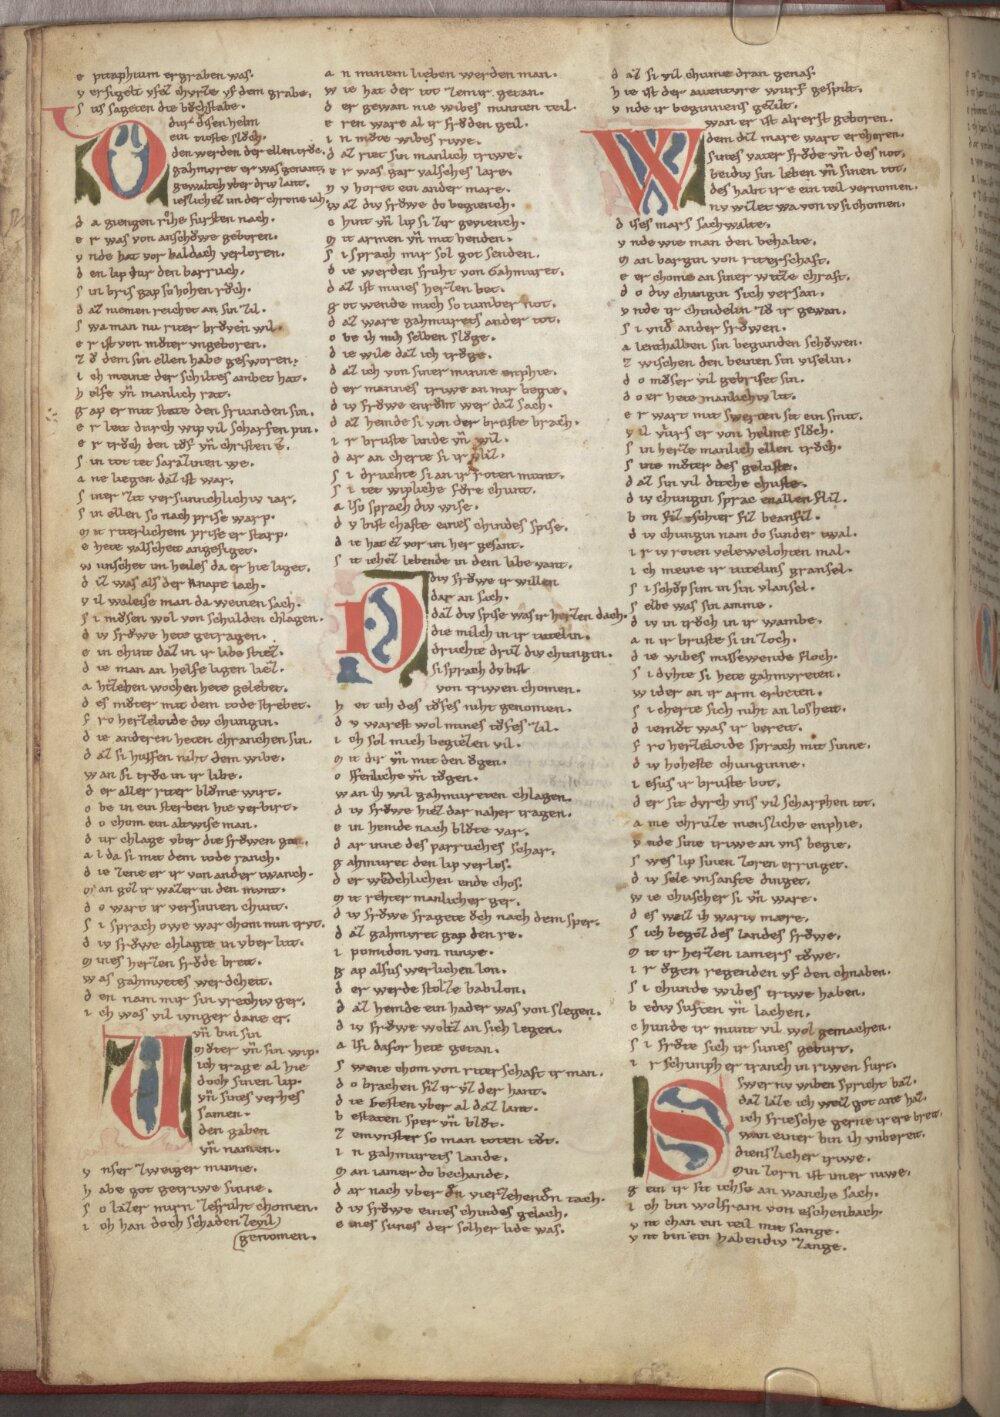 e pitaphium ergraben was.
v ersigelt vfez chruze vf dem grabe.
s us sageten die bŏchstabe.
Dur disen helm
ein tioste slŏch.
den werden der ellen trŏc.
gahmuret er was genant.
gewaltech vber driv lant.
ieslichez im der chrone iah.
d a giengen riche fursten nach.
e r was von anschŏwe geboren.
v nde hat vor baldach verloren.
d en lip dur den barruch.
s in bris gap so hohen rŏch.
d az niemen reichet an sin zil.
s wa man nu riter brŏven wil.
e r ist von mŏter vngeboren.
z ŏ dem sin ellen habe gesworen.
i ch meine der schiltes ambet hat.
h elfe vn̄ manlich rat.
g ap er mit state den friunden sin.
e r leit durch wip vil scharfen pin.
e r trŏch den tŏf vn̄ christen e.
s in tot tet sarazinen we.
a ne liegen daz ist war.
s iner zit versunnchlichiv iar.
s in ellen so nach prise warp.
m it riterlichem prise er starp.
e r hete valscheit angesiget.
w unschet im heiles da er hie liget.
d iz was als der knape iach.
v il waleise man da weinen sach.
s i mŏsen wol von schulden chlagen.
d iv frŏwe hete getragen.
e in chint daz in ir libe stiez.
d ie man an helfe ligen liez.
a hzehen wochen hete gelebet.
d es mŏter mit dem tode strebet.
f ro herzeloide div chungin.
d ie anderen heten chranchen sin.
d az si hulfen niht dem wibe.
w an si trŏc in ir libe.
d er aller riter blŏme wirt.
o be in ein sterben hie verbirt.
d o chom ein altwise man.
d ur chlage vber die frŏwen gan.
a l da si mit dem tode ranch.
d ie zene er ir von ander twanch.
m an gŏz ir wazer in den munt.
d o wart ir versinnen chunt.
s i sprach owe war chom min trvt.
d iv frŏwe chlagte in vber lut.
m ines herzen frŏde breit.
w as gahmuretes werdcheit.
d en nam mir sin vrechiv ger.
i ch was vil iunger dane er.
Un̄ bin sin
mŏter vn̄ sin wip.
ich trage al hie
doch sinen lip.
vn̄ sines verhes
samen.
den gaben
vn̄ namen.
v nser zweiger minne.
h abe got getriwe sinne.
s o lazer mirn zefruht chomen.
i ch han doch schaden zevil
genomen.
a n minem lieben werden man.
w ie hat der tot zemir getan.
d er gewan nie wibes minnen teil.
e ren ware al ir frŏden geil.
i n mŏte wibes riwe.
d az riet sin manlich triwe.
e r was gar valsches lare.
n v horet ein ander mare.
w az div frŏwe do begiench.
e hint vn̄ lip si zir geviench.
m it armen vn̄ mit henden.
s i sprach mir sol got senden.
d ie werden fruht von Gahmuret.
d az ist mines herzen bet.
g ot wende mich so tumber not.
d az ware gahmurets ander tot.
o be ih mih selben slŏge.
d ie wile daz ich trŏge.
d az ich von siner minne enphie.
d er mannes triwe an mir begie.
d iv frŏwe enrŏht wer daz sach.
d az hemde si von der bruste brach.
i r bruste linde vn̄ wiz.
d ar an cherte si ir fliz.
s i druchte si an ir roten munt.
s i tet wipliche fŏre chunt.
a lso sprach div wise.
d v bist chaste eines chindes spise.
d ie hat ez vor im her gesant.
s it ichez lebende in dem libe vant.
Div frŏwe ir willen
dar an sach.
daz div spise was ir herzen dach.
die milch in ir tutelin.
druchte druz div chungin.
si sprach dv bist
von triwen chomen.
h et ich des tŏfes niht genomen.
d v warest wol mines tŏfes zil.
i ch sol mich begiezen vil.
m it dir vn̄ mit den ŏgen.
o ffenliche vn̄ tŏgen.
w an ih wil gahmureten chlagen.
d iv frŏwe hiez dar naher tragen.
e in hemde nach blŏte var.
d ar inne des parruches schar.
g ahmuret den lip verlos.
d er wĕdehlichen ende chos.
m it rehter manlicher ger.
d iv frŏwe fragete ŏch nach dem sper.
d az gahmuret gap den re.
i pomidon von ninve.
g ap alsus werlichen lon.
d er werde stolze babilon.
d az hemde ein hader was von slegen.
d iv frŏwe woltz an sich legen.
a lsi dafor hete getan.
s wene chom von riterschaft ir man.
d o brachen siz ir vz der hant.
d ie besten vber al daz lant.
b estaten sper vn̄ blŏt.
z emvnster so man toten tŏt.
i n gahmurets lande.
m an iamer do bechande.
d ar nach vber dn̄ vierzehendn̄ tach.
d iv frŏwe eines chindes gelach.
e ines sunes der solher lide was.
d az si vil chume dran genas.
h ie ist der auentvre wurf gespilt.
v nde ir beginnens gezilt.
Wan er ist alrerst geboren.
dem diz mare wart erchoren.
sines vater frŏde vn̄ des not.
beidiv sin leben vn̄ sinen tot.
des habt ir e ein teil vernomen.
nv wizet wa von iv si chomen.
d ises mars sachwalte.
v nde wie man den behalte.
m an bargin von riterschaft.
e er chome an siner witze chraft.
d o div chungin sich versan.
v nde ir chindelin zŏ ir gewan.
s i vnd̄ ander frŏwen.
a lenthalben sin begunden schŏwen.
z wischen den beinen sin viselin.
d o mŏser vil gebrisset sin.
d o er hete manlichiv lit.
e r wart mit swerten sit ein smit.
v il viurs er von helme slŏch.
s in herze manlich ellen trŏch.
s ine mŏter des geluste.
d az sin vil ditche chuste.
d iv chungin sprac enallen fliz.
b on fiz tschier fiz beanfiz.
d iv chungin nam do sunder twal.
i r iv roten velewelohten mal.
i ch meine ir tutelins gransel.
s i schŏp sim in sin vlansel.
s elbe was sin amme.
d iv in trŏch in ir wambe.
a n ir bruste si in zoch.
d ie wibes missewende floch.
s i dvhte si hete gahmvreten.
w ider an ir arm erbeten.
s i cherte sich niht an losheit.
d iemŏt was ir bereit.
f ro herzeloide sprach mit sinne.
d iv hoheste chunginne.
i esus ir bruste bot.
d er sit dvrch vns vil scharphen tot.
a me chrutze mensliche enphie.
v nde sine triwe an vns begie.
s wes lip sinen zoren erringet.
d iv sele vnsanfte dinget.
w ie chuscher si vn̄ ware.
d es weiz ih wariv mære.
s ich begŏz des landes frŏwe.
m it ir herzen iamers tŏwe.
i r ŏgen regenden vf den chnaben.
s i chunde wibes triwe haben.
b ediv suften vn̄ lachen.
c hunde ir munt vil wol gemachen.
s i frŏte sich ir sunes geburt.
i r schimph er tranch in riwen furt.
Swer nv wiben sprichit baz.
daz laze ich weiz got ane haz.
ich friesche gerne ir ere breit.
wan einer bin ih vnbereit.
dienslicher triwe.
min zorn ist imer niwe.
g ein ir sit ichse an wanche sach.
i ch bin wolfram von eschenbach.
v nt chan ein teil mit sange.
v nt bin ein habendiv zange.